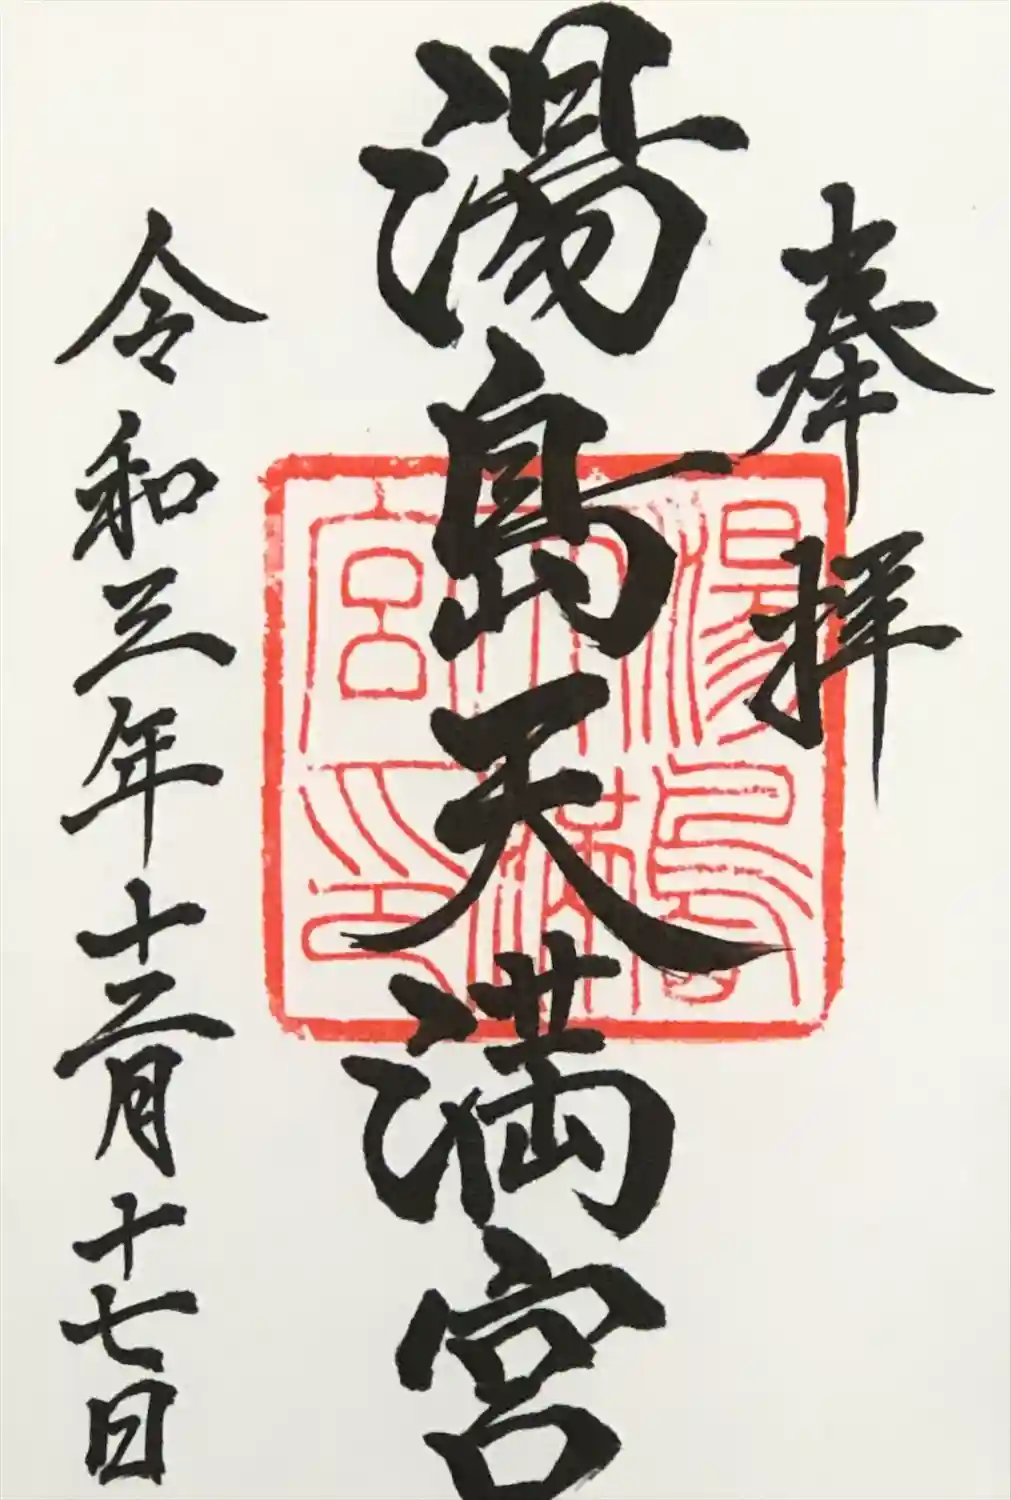 奉拝
湯島天満宮
湯島天満宮印
令和三年十二月十七日